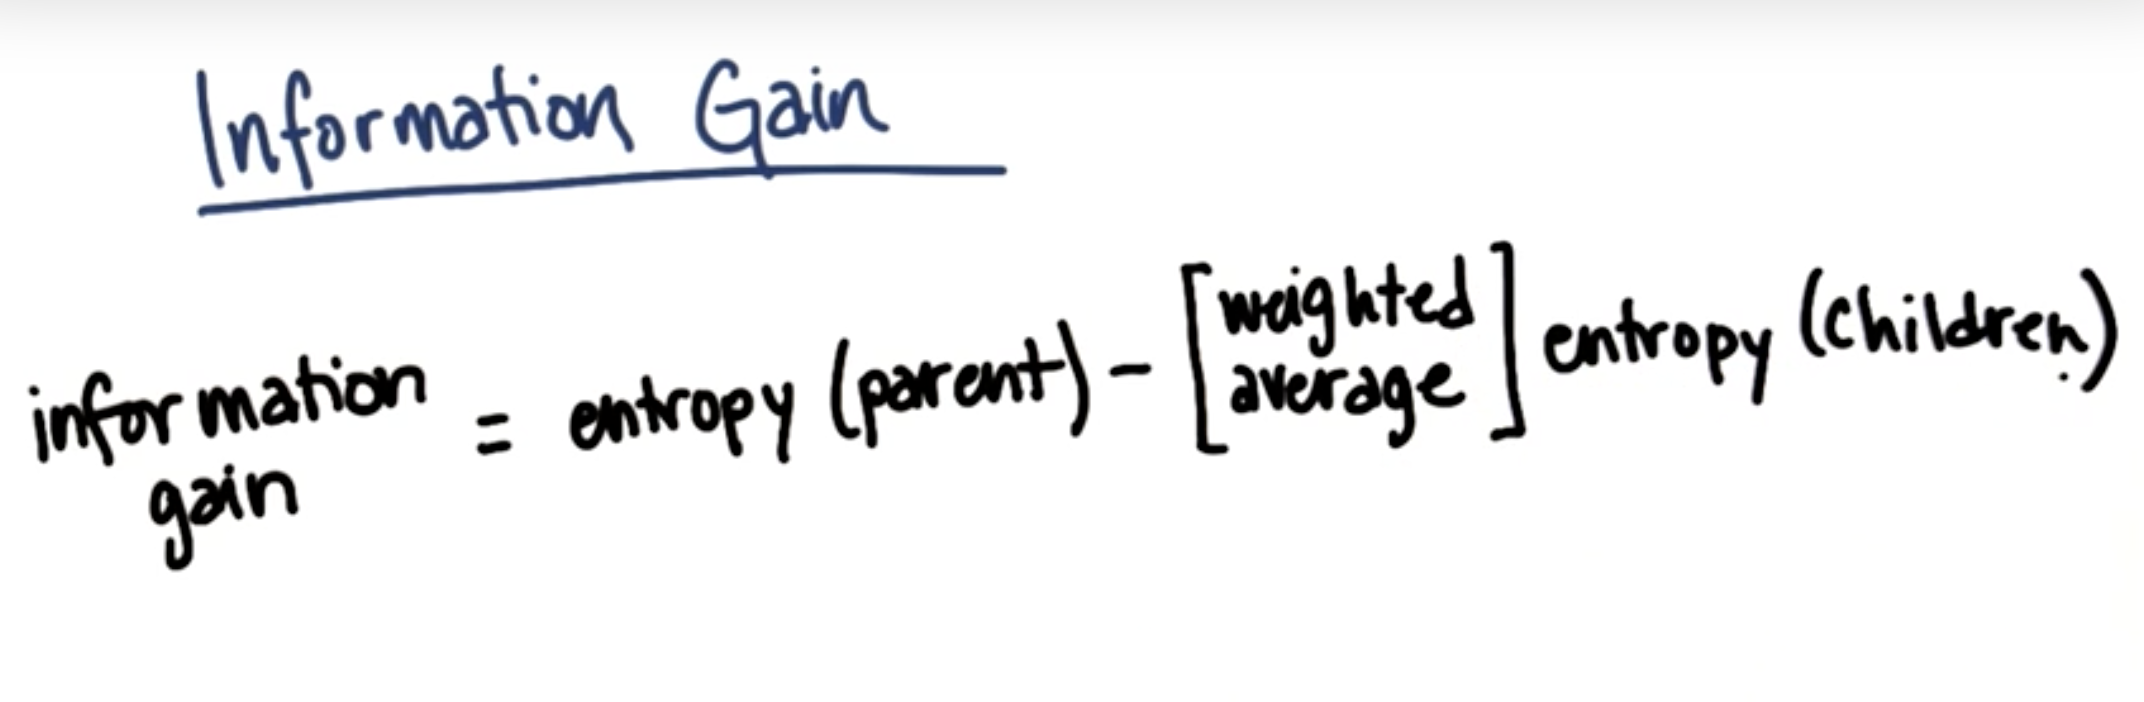 Information Gain
information gain = entropy (parent) - [weighted average] entropy (children)